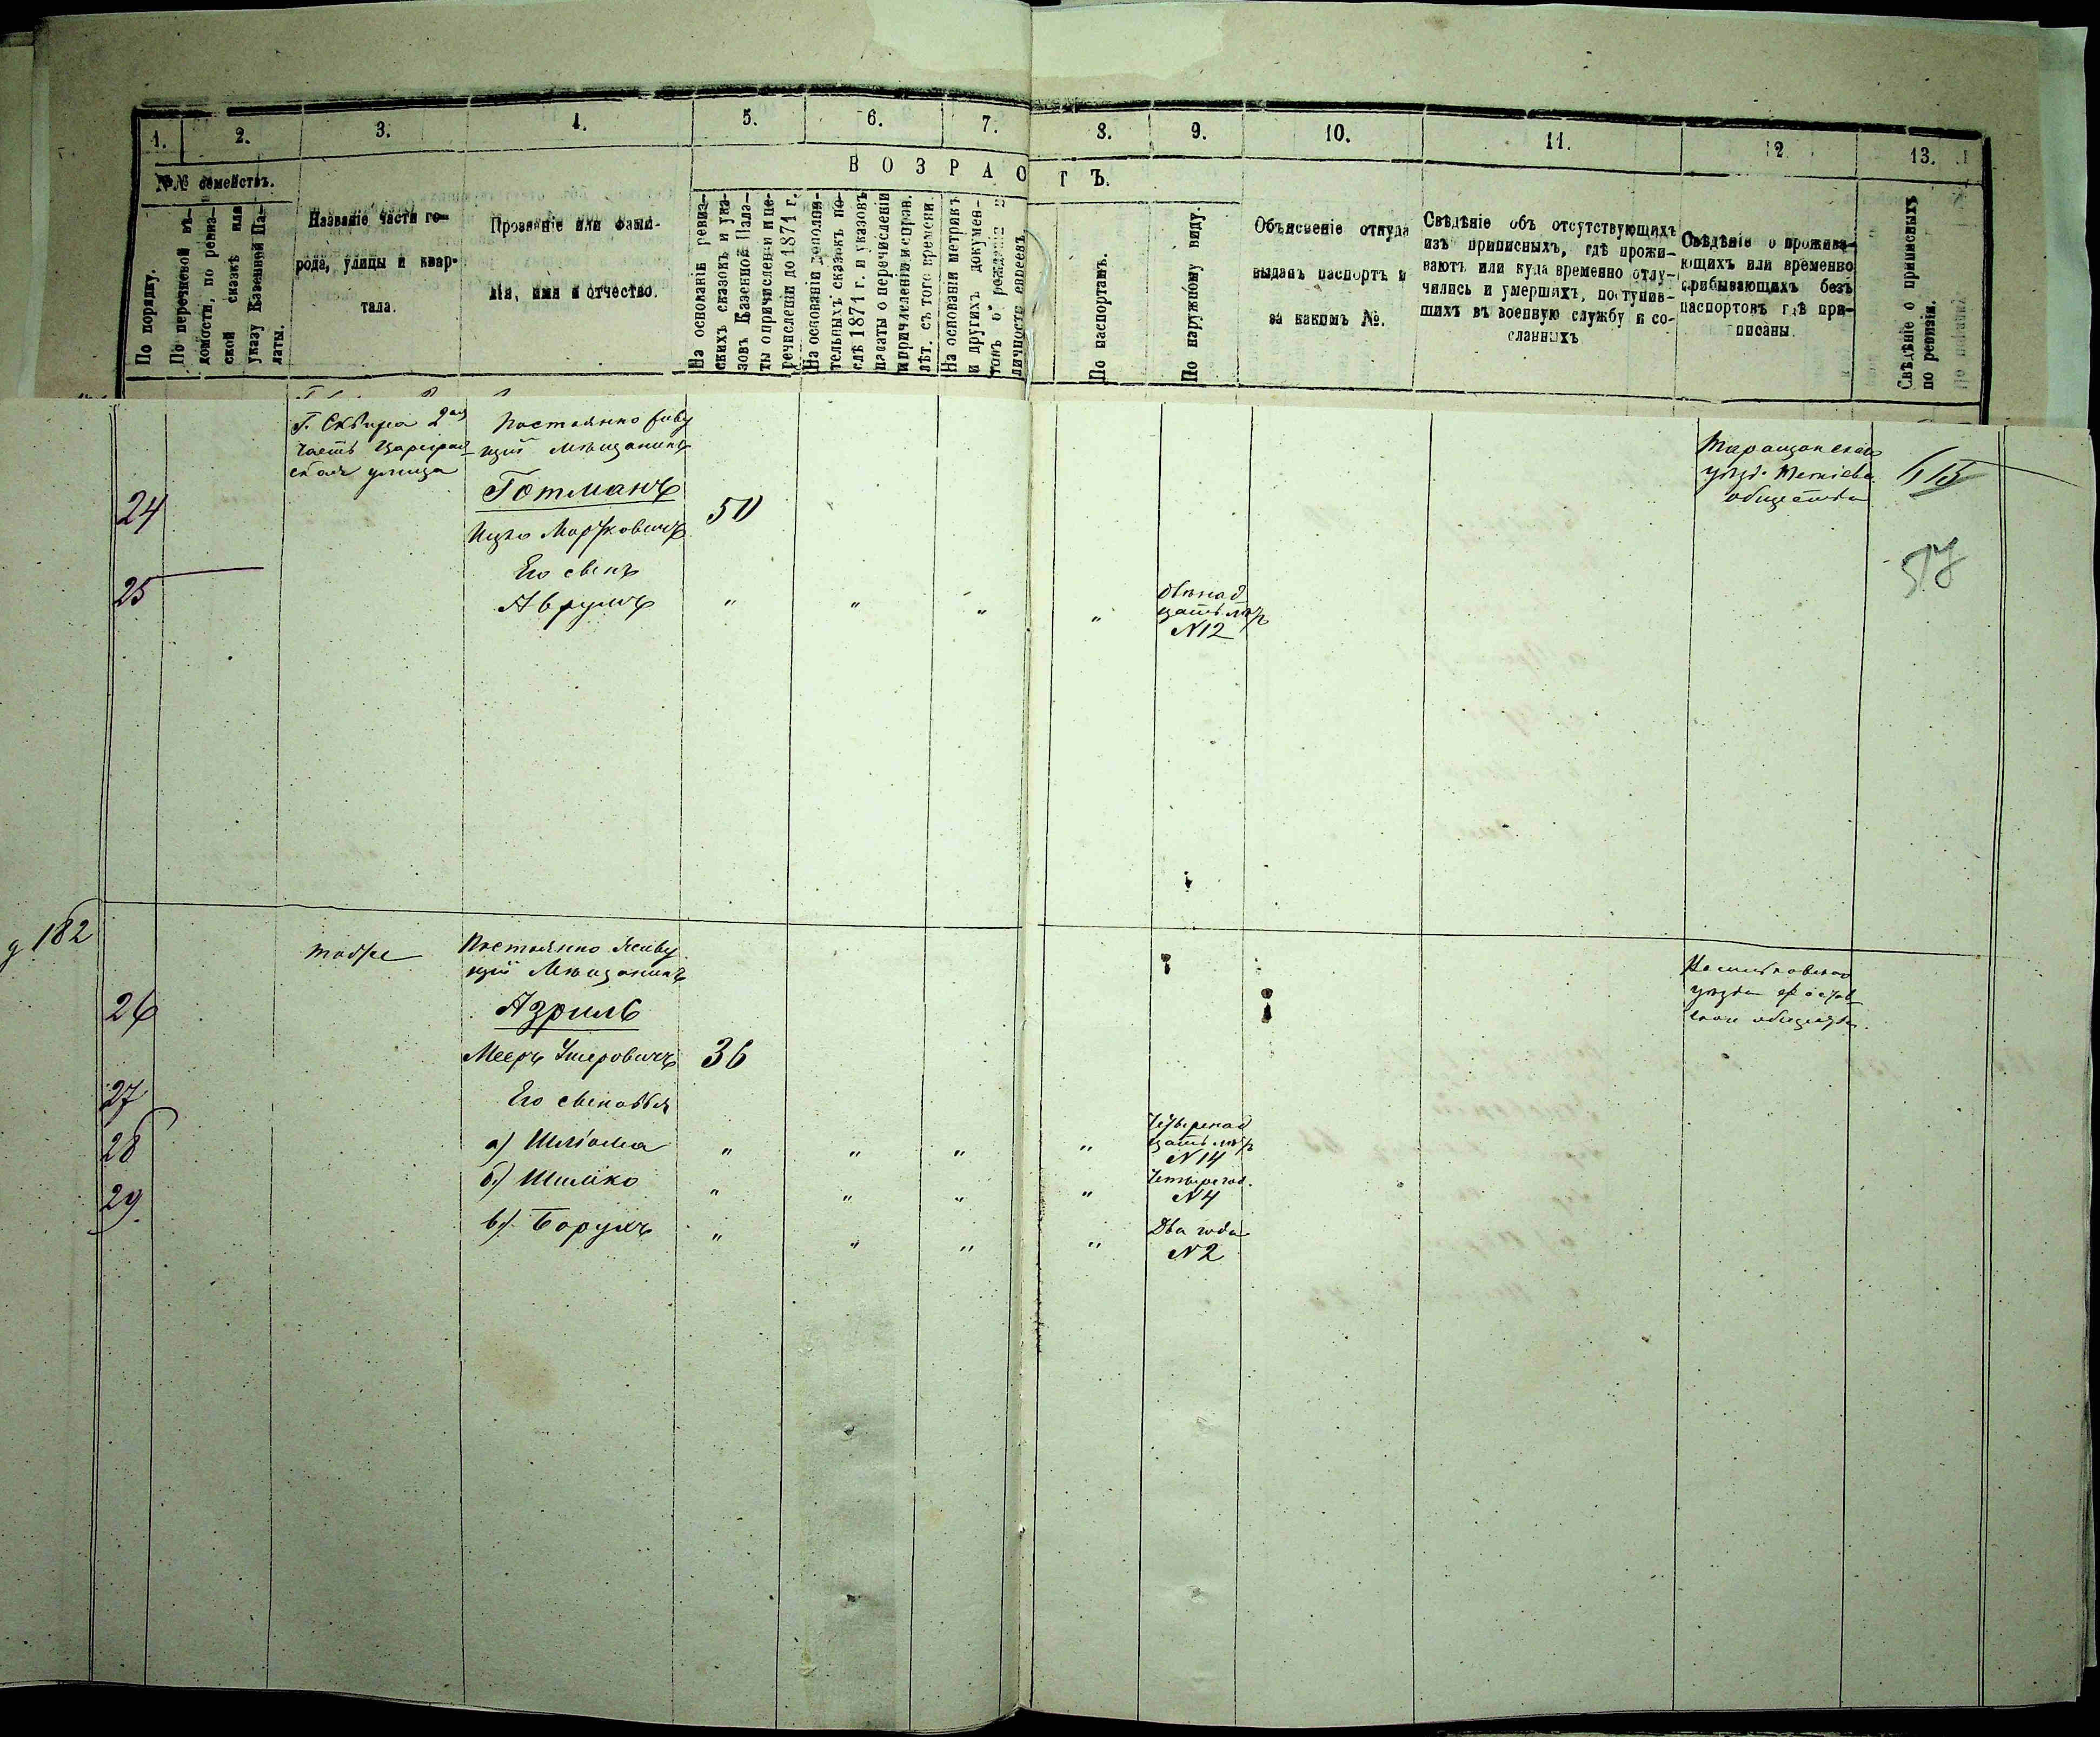 1. 2. 3. 4. 5. 6. 7. 8. 9. 10. 11. 12 13.
№№ семействъ.
ВОЗРАСТЪ.
По порядку.
По перечневой вѣ-
домости, по ревиз-
ской сказкѣ или
указу Казенной Па-
латы.
Названіе части го-
рода, улицы и квар-
тала.
Прозваніе или фами-
лія, имя и отчество.
На основаніи ревиз-
скихъ сказокъ и ука-
зовъ Казенной Пала-
ты о причисленіи и пе-
речисленіи до 1871 г.
На основаніи дополни-
тельныхъ сказокъ по-
слѣ 1871 г. и указовъ
палаты о перечисленіи
и причисленіи и справ.
лѣт. съ того времени.
На основаніи метрикъ
и другихъ докумен-
товъ о рожденіи и
личности евреевъ.
По паспортамъ.
По наружному виду.
Объясненіе откуда
выданъ паспортъ и
за какимъ №.
Свѣдѣніе объ отсутствующихъ
изъ приписныхъ, гдѣ прожи-
ваютъ или куда временно отлу-
чились и умершихъ, поступив-
шихъ въ военную службу и со-
сланныхъ
Свѣдѣніе о прожива-
ющихъ или временно
прибывающихъ безъ
паспортовъ гдѣ при-
писаны.
Свѣдѣніе о приписныхъ
по ревизіи.
Г. Сквира 2ая
часть Цареград
ская улица
Постоянно живу
щій Мѣщанинъ
Готманъ
24
Ицко Марковичъ
50
Таращанскаго
уѣзд. Тетіева
общества
515
57
Его сынъ
25
Аврумъ
" " " "
двѣнад
цать лѣтъ
N12
д 182
тоже
Постоянно живу
щій Мѣщанинъ
26
Азриль
Мееръ Ушеровичъ
36
Васильковскаго
уѣзда Фастов
скаго общества.
27
Его сыновья
28
а) Шліома
" " " "
Четырнад
цать лѣтъ
N14
29
б) Шмилко
" " " "
Четыре год.
N4
в) Борухъ
" " " "
Два года
N2